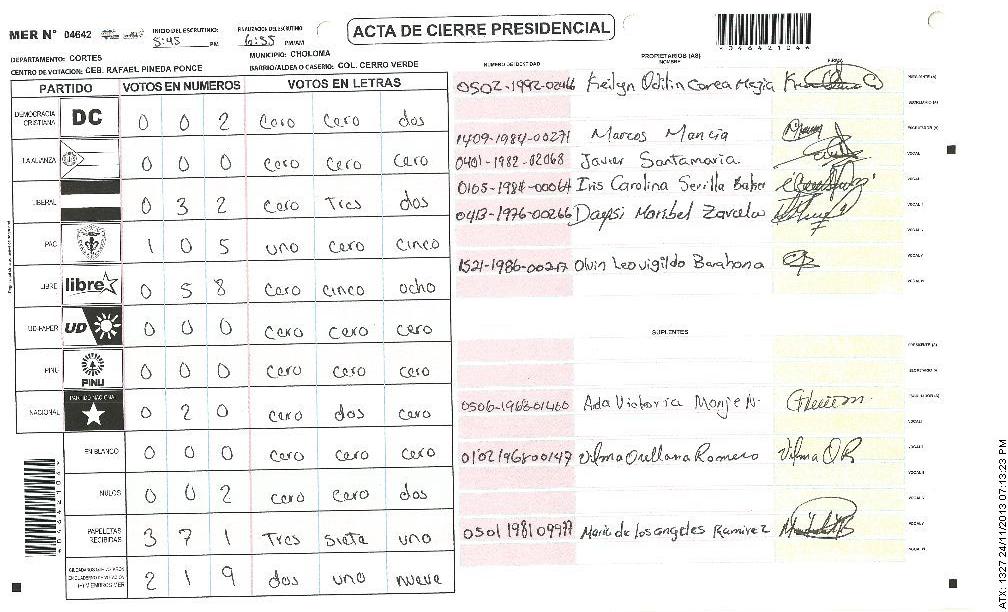 ACTA DE CIERRE PRESIDENCIAL
MER N° 04642
INICIO DEL ESCRUTINIO: 5:45 PM
FINALIZACION DEL ESCRUTINIO 6:55 PM/AM
DEPARTAMENTO: CORTES
MUNICIPIO: CHOLOMA
CENTRO DE VOTACION: CEB. RAFAEL PINEDA PONCE
BARRIO/ALDEA O CASERIO: COL. CERRO VERDE
PARTIDO VOTOS EN NUMEROS VOTOS EN LETRAS
DEMOCRACIA CRISTIANA DC 0 0 2 cero cero dos
LA ALIANZA 0 0 0 cero cero cero
LIBERAL 0 3 2 cero Tres dos
PAC 1 0 5 uno cero cinco
LIBRE libre 0 5 8 cero cinco ocho
UD-FAPER UD 0 0 0 cero cero cero
PINU PINU 0 0 0 cero cero cero
NACIONAL PARTIDO NACIONAL 0 2 0 cero dos cero
EN BLANCO 0 0 0 cero cero cero
NULOS 0 0 2 cero cero dos
PAPELETAS RECIBIDAS 3 7 1 Tres siete uno
2 1 9 dos uno nueve
NUMERO DE IDENTIDAD
PROPIETARIOS (AS)
NOMBRE
FIRMA
0502-1992-02466 Keilyn Odilin Corea Mejia
1409-1984-00271 Marcos Mancia
0401-1982-02068 Javier Santamaria
Iris Carolina Sevilla
0413-1976-00266 Daysi Maribel Zavala
1521-1986-00217 Olvin Leovigildo Barahona
SUPLENTES
0506-1968-01460 Ada Victoria
0102196800147 Vilma Orellana Romero Vilma O R
0501198109977 Maria de los angeles Ramirez
04642104
ATX: 1327 24/11/2013 07:13:23 PM